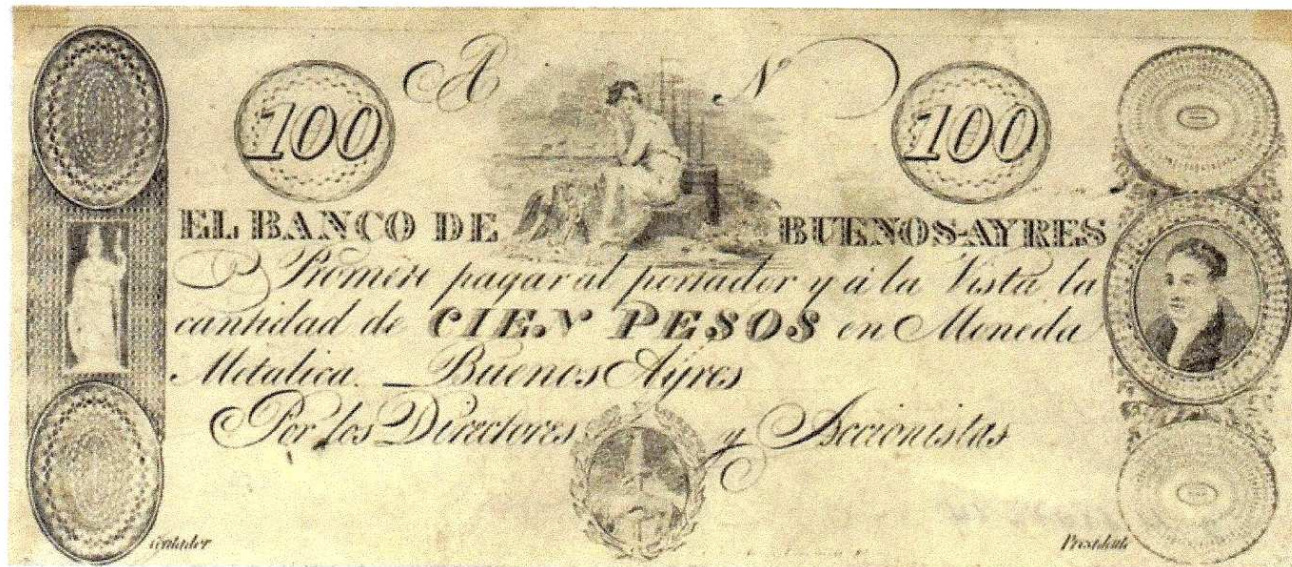 A N
100 100
EL BANCO DE BUENOS-AYRES
Promete pagar al portador y à la Vista la
cantidad de CIEN PESOS en Moneda
Metalica. _ Buenos Ayres
Por los Directores y Accionistas
Contador Presidente